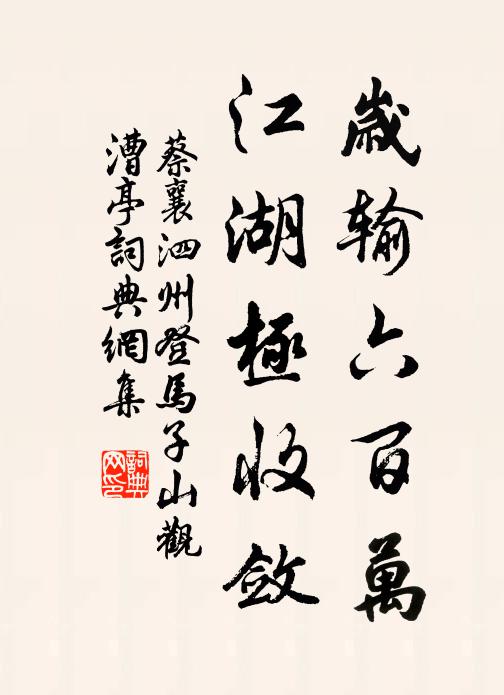 歲輸六百萬
江湖極收斂
蔡襄泗州登馬子山觀
漕亭詞典網集
詞典網印